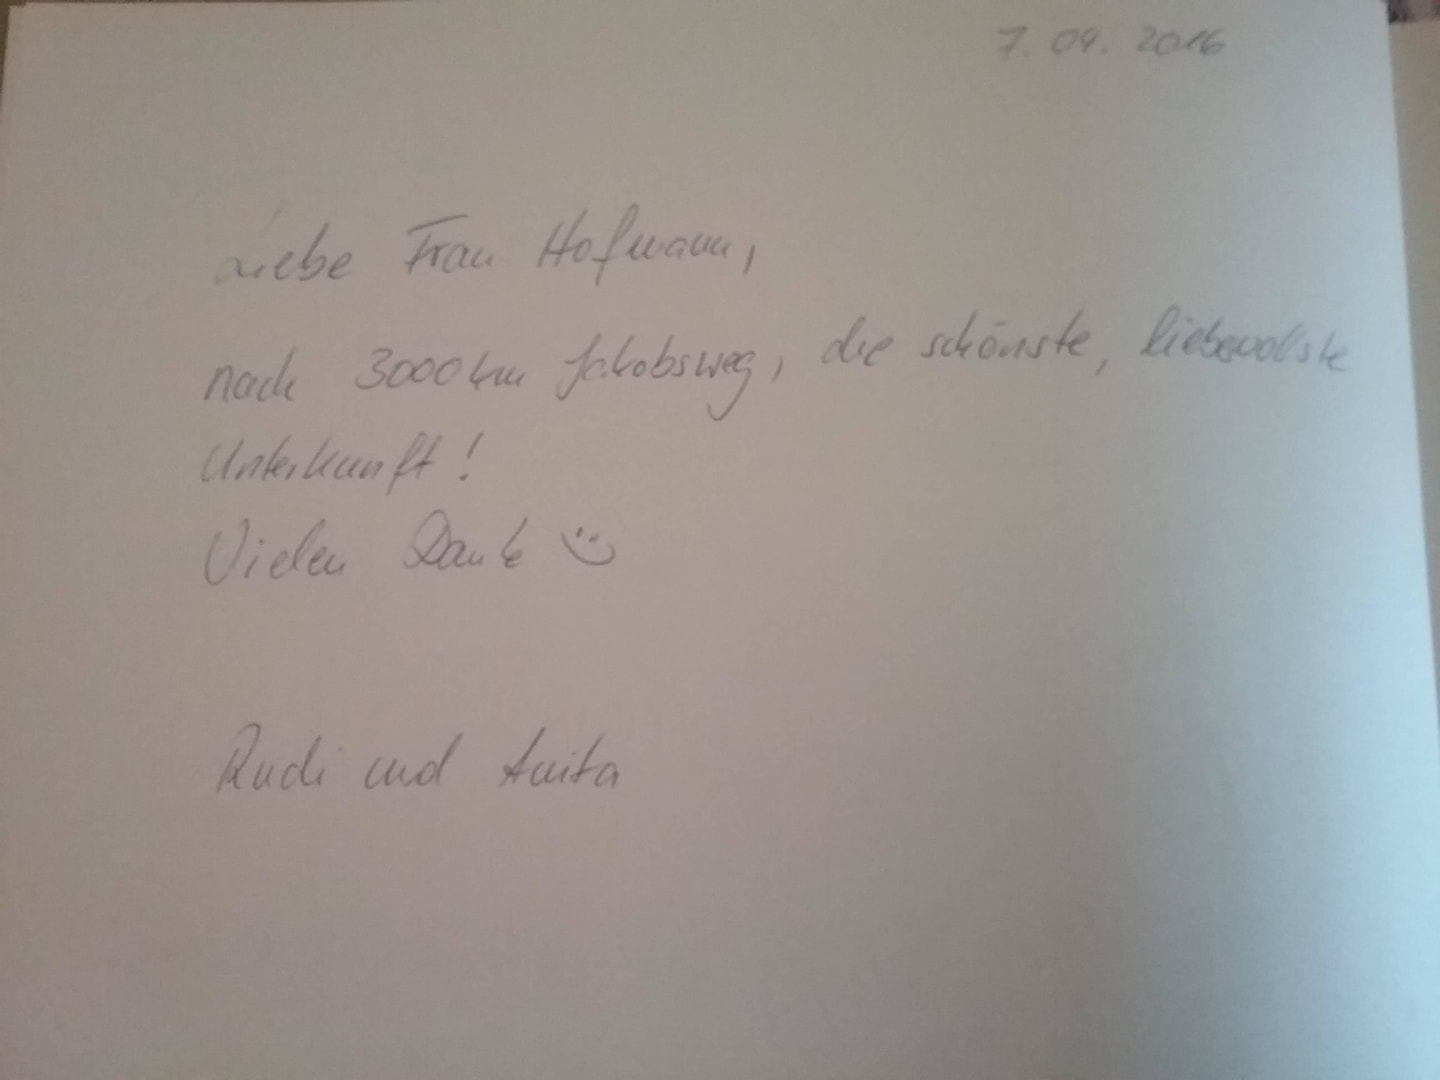 7. 09. 2016
Liebe Frau Hofmann,
nach 3000 km Jakobsweg, die schönste, liebevollste
Unterkunft!
Vielen Dank :)
Rudi und Anita